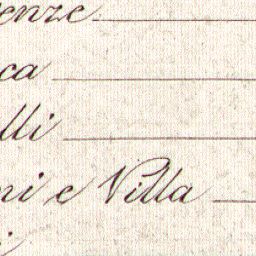 enze
ca
lli
ni e Villa